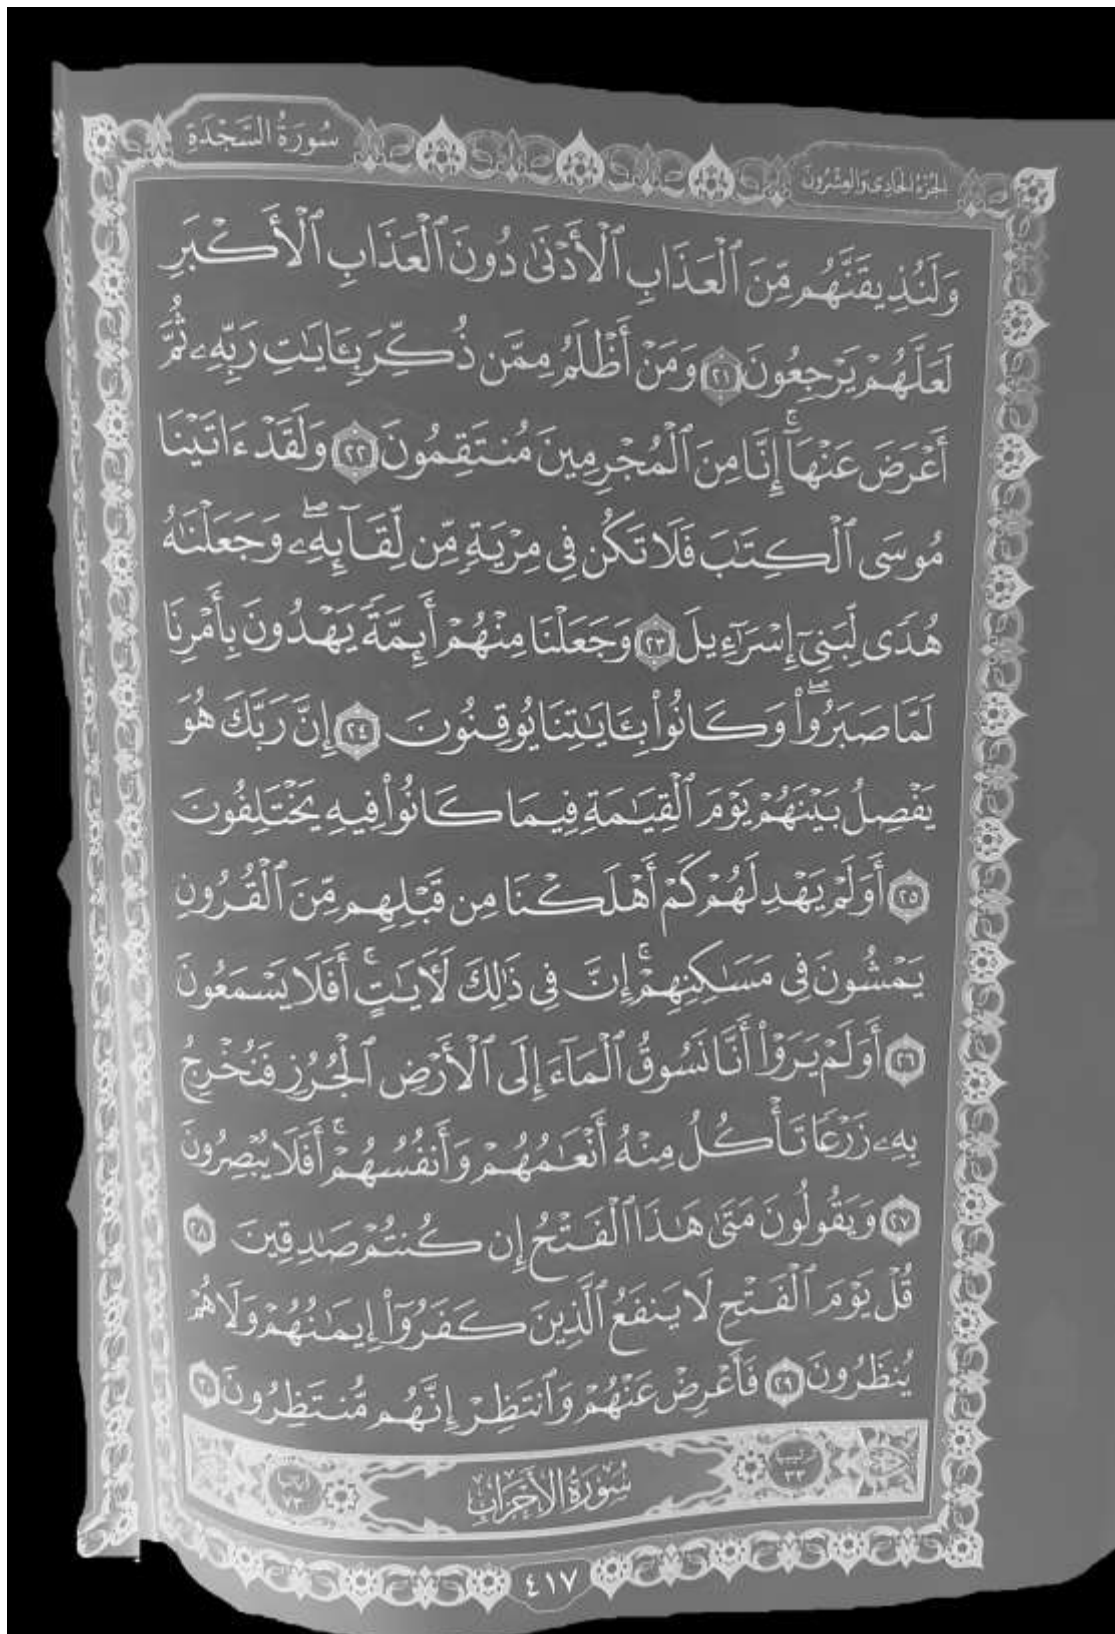 الجُزْءُ الحَادِي وَالعِشْرُونَ
سُورَةُ السَّجْدَةِ
وَلَنُذِيقَنَّهُم مِّنَ ٱلْعَذَابِ ٱلْأَدْنَىٰ دُونَ ٱلْعَذَابِ ٱلْأَكْبَرِ
لَعَلَّهُمْ يَرْجِعُونَ ٢١ وَمَنْ أَظْلَمُ مِمَّن ذُكِّرَ بِـَٔايَـٰتِ رَبِّهِۦ ثُمَّ
أَعْرَضَ عَنْهَآ ۚ إِنَّا مِنَ ٱلْمُجْرِمِينَ مُنتَقِمُونَ ٢٢ وَلَقَدْ ءَاتَيْنَا
مُوسَى ٱلْكِتَـٰبَ فَلَا تَكُن فِى مِرْيَةٍ مِّن لِّقَآئِهِۦ ۖ وَجَعَلْنَـٰهُ
هُدًى لِّبَنِىٓ إِسْرَٰٓءِيلَ ٢٣ وَجَعَلْنَا مِنْهُمْ أَئِمَّةً يَهْدُونَ بِأَمْرِنَا
لَمَّا صَبَرُوا۟ ۖ وَكَانُوا۟ بِـَٔايَـٰتِنَا يُوقِنُونَ ٢٤ إِنَّ رَبَّكَ هُوَ
يَفْصِلُ بَيْنَهُمْ يَوْمَ ٱلْقِيَـٰمَةِ فِيمَا كَانُوا۟ فِيهِ يَخْتَلِفُونَ
٢٥ أَوَلَمْ يَهْدِ لَهُمْ كَمْ أَهْلَكْنَا مِن قَبْلِهِم مِّنَ ٱلْقُرُونِ
يَمْشُونَ فِى مَسَـٰكِنِهِمْ ۚ إِنَّ فِى ذَٰلِكَ لَـَٔايَـٰتٍ ۚ أَفَلَا يَسْمَعُونَ
٢٦ أَوَلَمْ يَرَوْا۟ أَنَّا نَسُوقُ ٱلْمَآءَ إِلَى ٱلْأَرْضِ ٱلْجُرُزِ فَنُخْرِجُ
بِهِۦ زَرْعًا تَأْكُلُ مِنْهُ أَنْعَـٰمُهُمْ وَأَنفُسُهُمْ ۚ أَفَلَا يُبْصِرُونَ
٢٧ وَيَقُولُونَ مَتَىٰ هَـٰذَا ٱلْفَتْحُ إِن كُنتُمْ صَـٰدِقِينَ ٢٨
قُلْ يَوْمَ ٱلْفَتْحِ لَا يَنفَعُ ٱلَّذِينَ كَفَرُوٓا۟ إِيمَـٰنُهُمْ وَلَا هُمْ
يُنظَرُونَ ٢٩ فَأَعْرِضْ عَنْهُمْ وَٱنتَظِرْ إِنَّهُم مُّنتَظِرُونَ ٣٠
ترتيبها ٣٣ سُورَةُ الأَحْزَابِ آياتها ٧٣
٤١٧